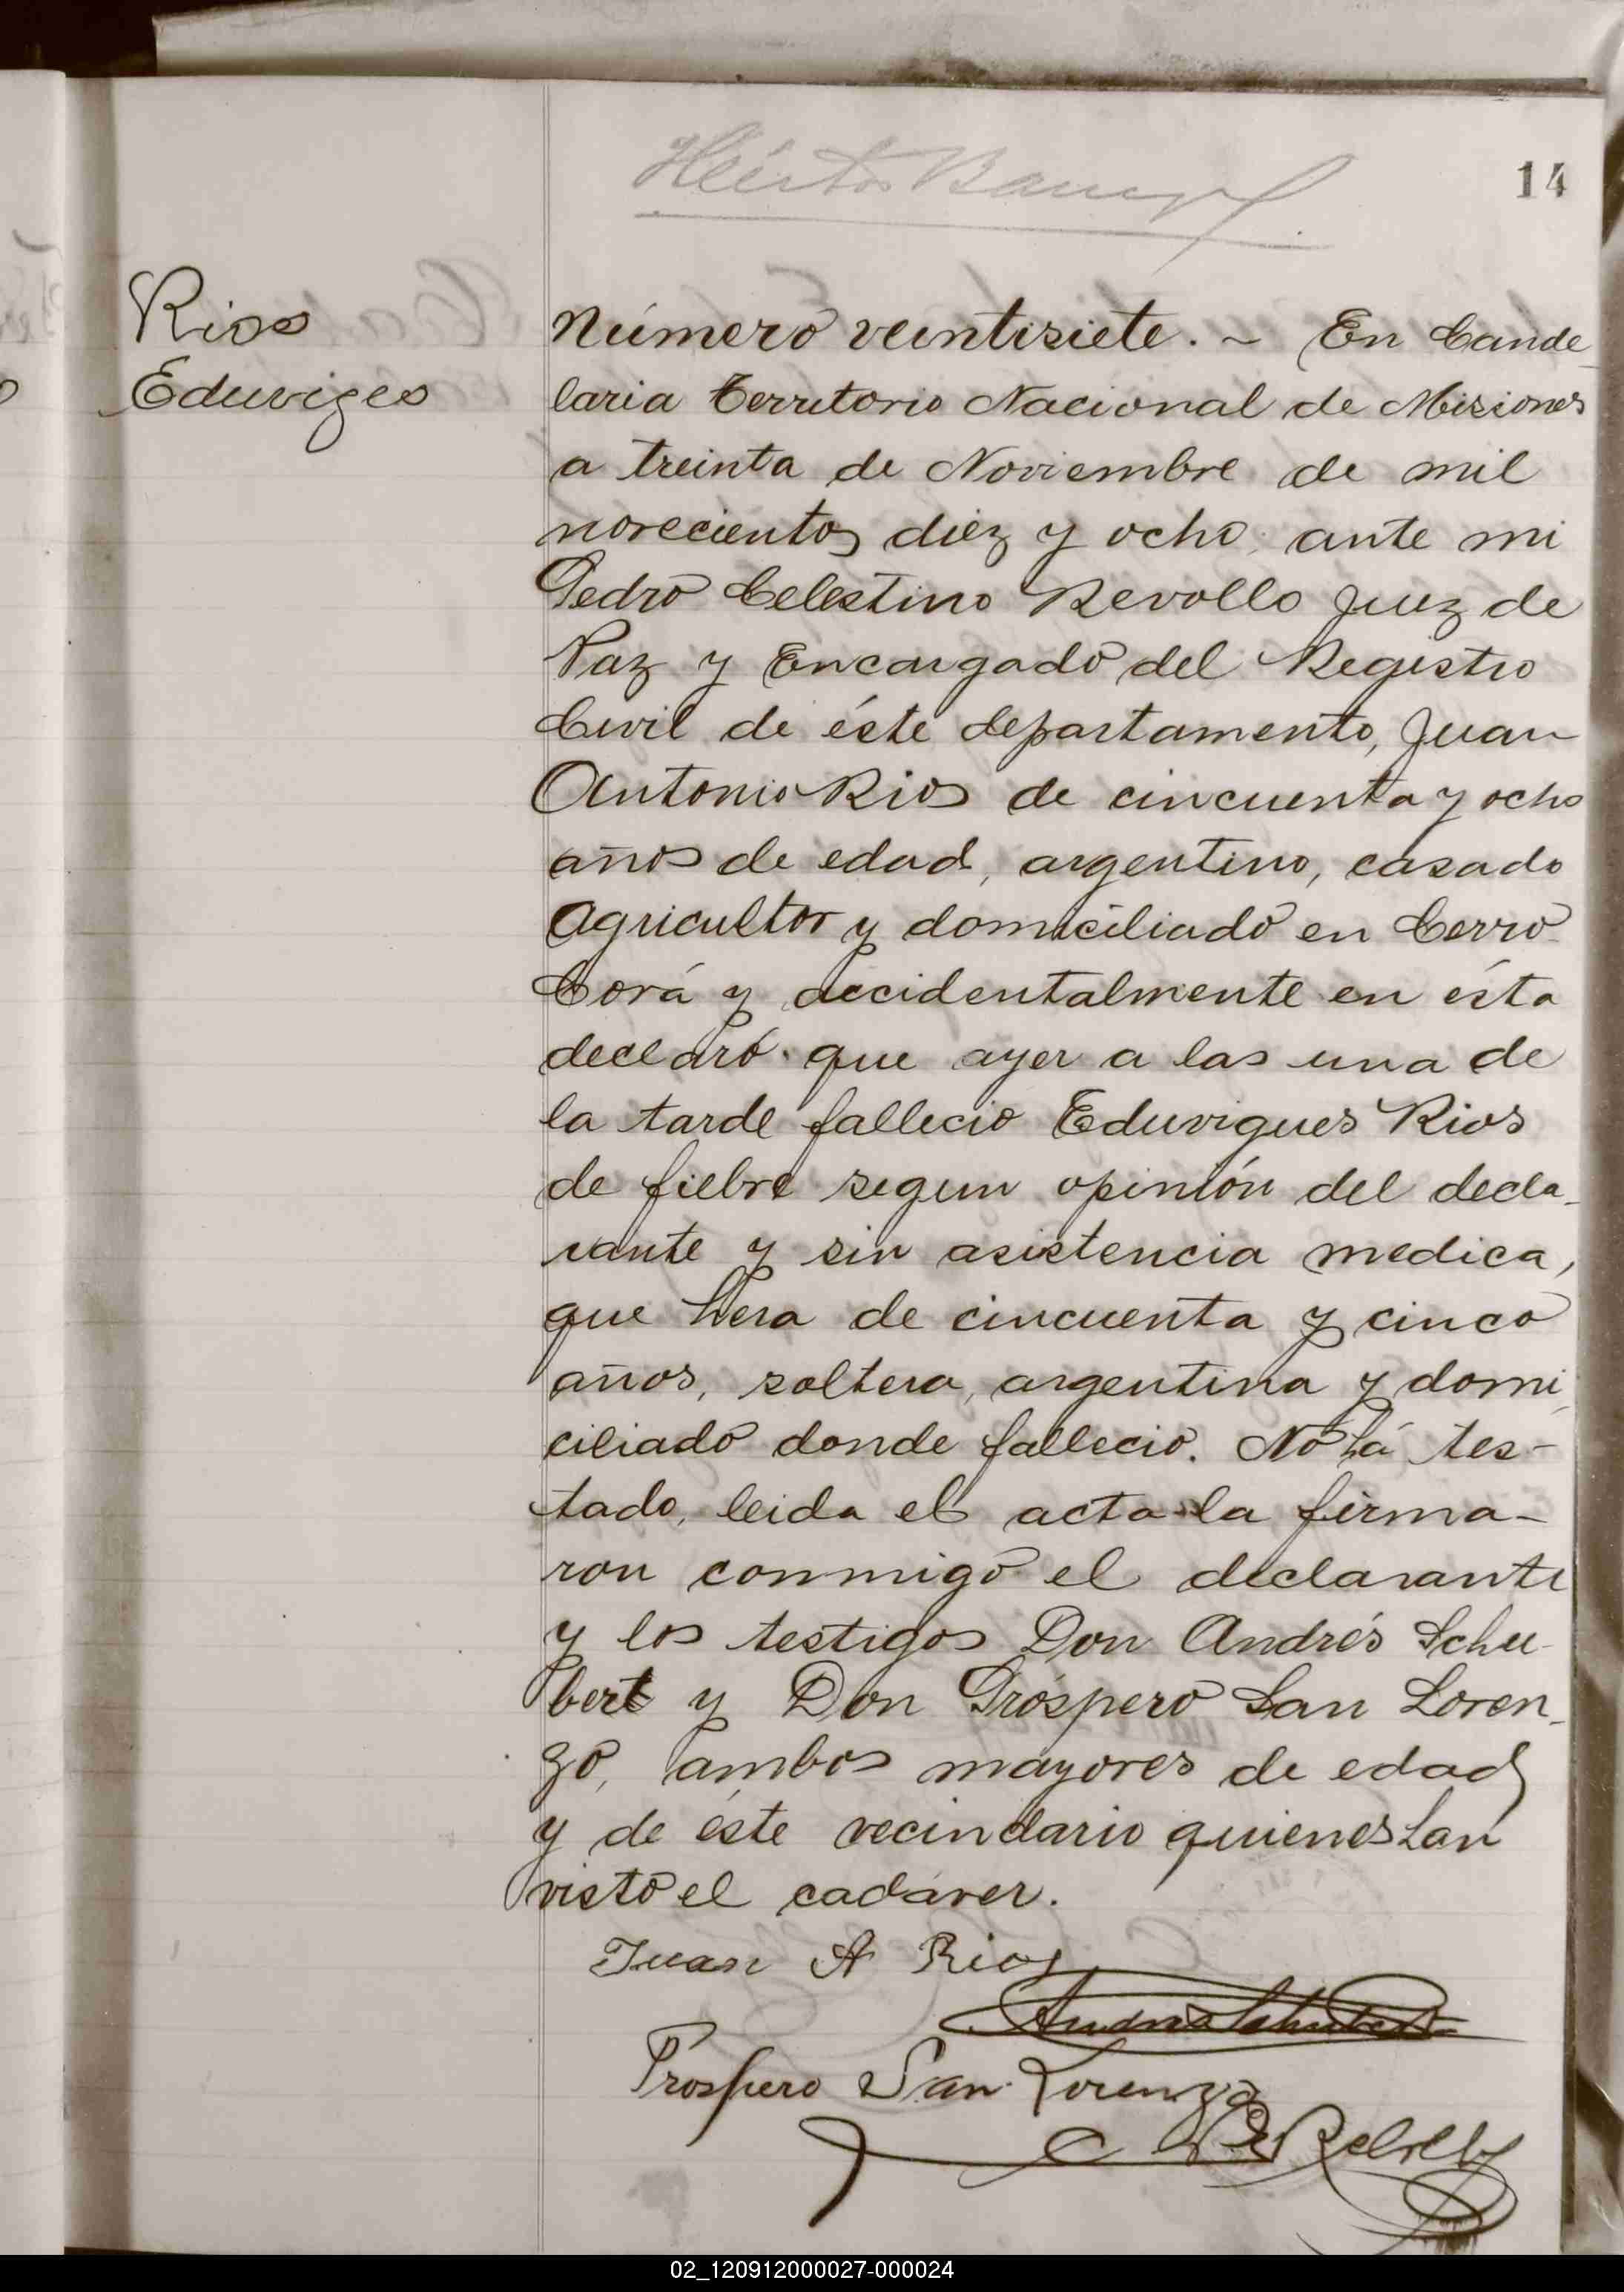 14
Rios
Eduviges
Número veintisiete. ~ En Cande-
laria Territorio Nacional de Misiones
a treinta de Noviembre de mil
novecientos diez y ocho, ante mi
Pedro Celestino Revollo Juez de
Paz y Encargado del Registro
Civil de éste departamento, Juan
Antonio Rios de cincuenta y ocho
años de edad, argentino, casado
Agricultor y domiciliado en Cerro-
Corá y accidentalmente en ésta
declaró que ayer a las una de
la tarde fallecio Eduvigues Rios
de fiebre segun opinión del decla-
rante y sin asistencia medica,
que hera de cincuenta y cinco
años, soltera, argentina y domi-
ciliado donde fallecio. No há tes-
tado, leida el acta la firma-
ron conmigo el declarante
y los testigos Don Andrés Schu-
bert y Don Próspero San Loren-
zo, ambos mayores de edad
y de éste vecindario quienes han
visto el cadáver.
Juan A Rios
Andres Schubert
Prospero San Lorenzo
02_120912000027-000024